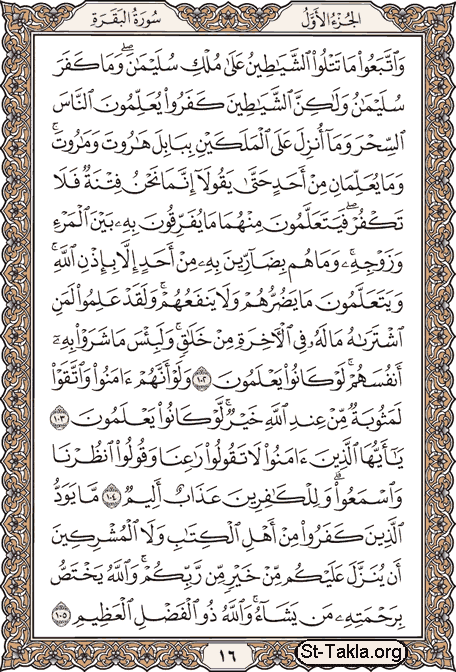 الجزء الأول
سورة البقرة
وَٱتَّبَعُوا۟ مَا تَتْلُوا۟ ٱلشَّيَٰطِينُ عَلَىٰ مُلْكِ سُلَيْمَٰنَ ۖ وَمَا كَفَرَ
سُلَيْمَٰنُ وَلَٰكِنَّ ٱلشَّيَٰطِينَ كَفَرُوا۟ يُعَلِّمُونَ ٱلنَّاسَ
ٱلسِّحْرَ وَمَآ أُنزِلَ عَلَى ٱلْمَلَكَيْنِ بِبَابِلَ هَٰرُوتَ وَمَٰرُوتَ ۚ
وَمَا يُعَلِّمَانِ مِنْ أَحَدٍ حَتَّىٰ يَقُولَآ إِنَّمَا نَحْنُ فِتْنَةٌ فَلَا
تَكْفُرْ ۖ فَيَتَعَلَّمُونَ مِنْهُمَا مَا يُفَرِّقُونَ بِهِۦ بَيْنَ ٱلْمَرْءِ
وَزَوْجِهِۦ ۚ وَمَا هُم بِضَآرِّينَ بِهِۦ مِنْ أَحَدٍ إِلَّا بِإِذْنِ ٱللَّهِ ۚ
وَيَتَعَلَّمُونَ مَا يَضُرُّهُمْ وَلَا يَنفَعُهُمْ ۚ وَلَقَدْ عَلِمُوا۟ لَمَنِ
ٱشْتَرَىٰهُ مَا لَهُۥ فِى ٱلْءَاخِرَةِ مِنْ خَلَٰقٍ ۚ وَلَبِئْسَ مَا شَرَوْا۟ بِهِۦٓ
أَنفُسَهُمْ ۚ لَوْ كَانُوا۟ يَعْلَمُونَ ١٠٢ وَلَوْ أَنَّهُمْ ءَامَنُوا۟ وَٱتَّقَوْا۟
لَمَثُوبَةٌ مِّنْ عِندِ ٱللَّهِ خَيْرٌ ۖ لَّوْ كَانُوا۟ يَعْلَمُونَ ١٠٣
يَٰٓأَيُّهَا ٱلَّذِينَ ءَامَنُوا۟ لَا تَقُولُوا۟ رَٰعِنَا وَقُولُوا۟ ٱنظُرْنَا
وَٱسْمَعُوا۟ ۗ وَلِلْكَٰفِرِينَ عَذَابٌ أَلِيمٌ ١٠٤ مَّا يَوَدُّ
ٱلَّذِينَ كَفَرُوا۟ مِنْ أَهْلِ ٱلْكِتَٰبِ وَلَا ٱلْمُشْرِكِينَ
أَن يُنَزَّلَ عَلَيْكُم مِّنْ خَيْرٍ مِّن رَّبِّكُمْ ۗ وَٱللَّهُ يَخْتَصُّ
بِرَحْمَتِهِۦ مَن يَشَآءُ ۚ وَٱللَّهُ ذُو ٱلْفَضْلِ ٱلْعَظِيمِ ١٠٥
١٦
St-Takla.org